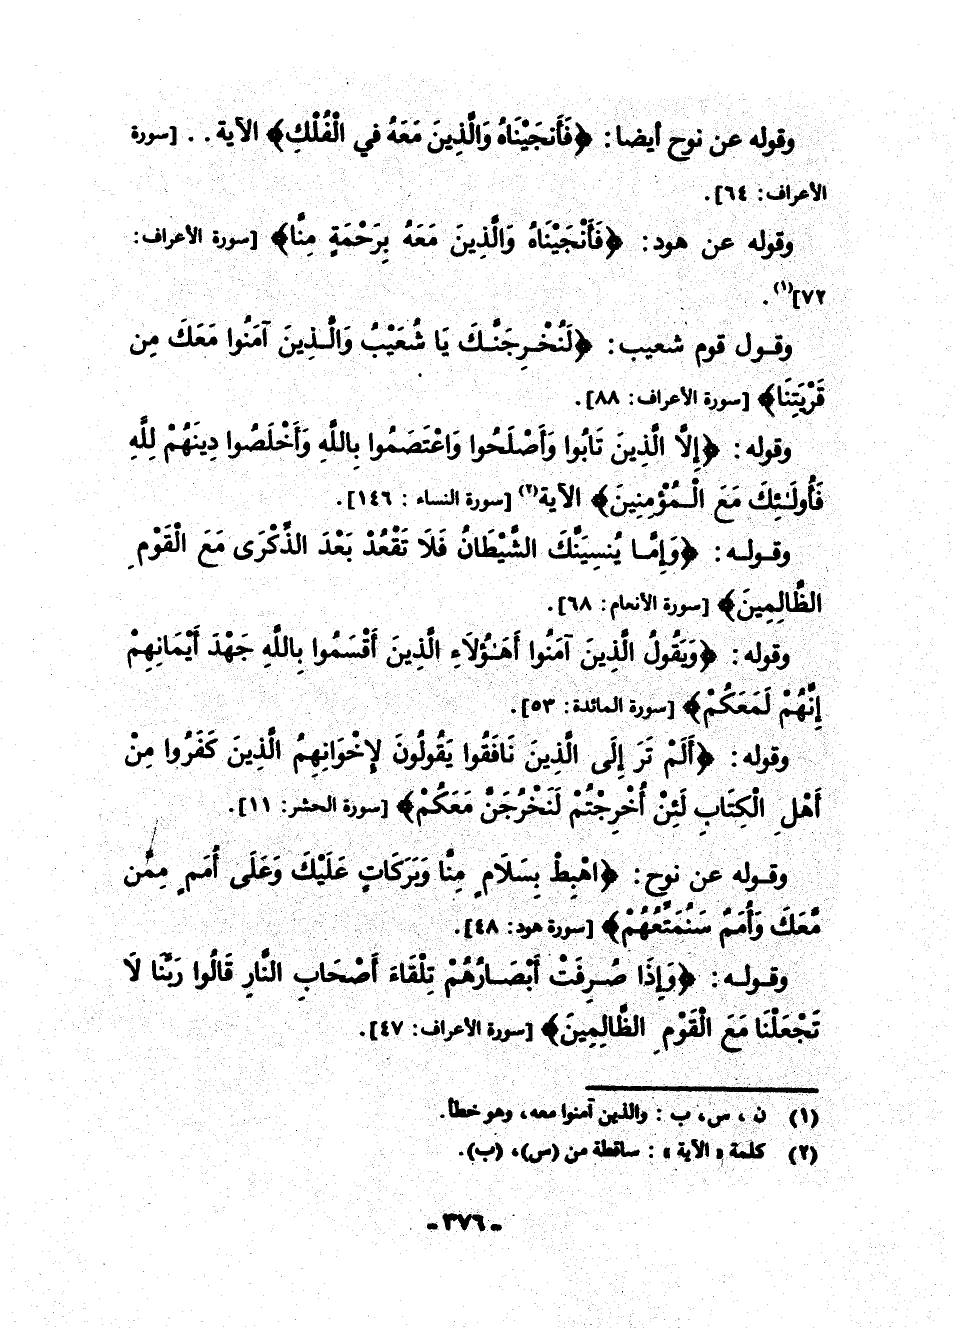 وقوله عن نوح أيضا: ﴿فَأَنجَيْنَاهُ وَالَّذِينَ مَعَهُ في الْفُلْكِ﴾ الآية . . [سورة
الأعراف: ٦٤].
وقوله عن هود: ﴿فَأَنْجَيْنَاهُ وَالَّذِينَ مَعَهُ بِرَحْمَةٍ مِنَّا﴾ [سورة الأعراف:
٧٢](١) .
وقـول قوم شعيب: ﴿لَنُخْـرِجَنَّـكَ يَا شُعَيْبُ وَالَّـذِينَ آمَنُوا مَعَكَ مِن
قَرْيَتِنَا﴾ [سورة الأعراف: ٨٨].
وقوله: ﴿إِلَّا الَّذِينَ تَابُوا وَأَصْلَحُوا وَاعْتَصَمُوا بِاللَّهِ وَأَخْلَصُوا دِينَهُمْ لِلَّهِ
فَأُولَـٰئِكَ مَعَ الْـمُؤْمِنِينَ﴾ الآية(٢) [سورة النساء : ١٤٦].
وقـولـه: ﴿وَإِمَّـا يُنسِيَنَّكَ الشَّيْطَانُ فَلَا تَقْعُدْ بَعْدَ الذِّكْرَى مَعَ الْقَوْمِ
الظَّالِمِينَ﴾ [سورة الأنعام: ٦٨].
وقوله: ﴿وَيَقُولُ الَّذِينَ آمَنُوا أَهَـٰؤُلَاءِ الَّذِينَ أَقْسَمُوا بِاللَّهِ جَهْدَ أَيْمَانِهِمْ
إِنَّهُمْ لَمَعَكُمْ﴾ [سورة المائدة: ٥٣].
وقوله: ﴿أَلَمْ تَرَ إِلَى الَّذِينَ نَافَقُوا يَقُولُونَ لِإِخْوَانِهِمُ الَّذِينَ كَفَرُوا مِنْ
أَهْلِ الْكِتَابِ لَئِنْ أُخْرِجْتُمْ لَنَخْرُجَنَّ مَعَكُمْ﴾ [سورة الحشر: ١١].
وقـوله عن نوح: ﴿اهْبِطْ بِسَلَامٍ مِنَّا وَبَرَكَاتٍ عَلَيْكَ وَعَلَى أُمَمٍ مِمَّن
مَّعَكَ وَأُمَمٌ سَنُمَتِّعُهُمْ﴾ [سورة هود: ٤٨].
وقـولـه: ﴿وَإِذَا صُـرِفَتْ أَبْصَـارُهُمْ تِلْقَاءَ أَصْحَابِ النَّارِ قَالُوا رَبَّنَا لَا
تَجْعَلْنَا مَعَ الْقَوْمِ الظَّالِمِينَ﴾ [سورة الأعراف: ٤٧].
(١) ن ، س، ب : والذين آمنوا معه، وهو خطأ.
(٢) كلمة « الآية » : ساقطة من (س)، (ب).
ـ ٣٧٦ ـ